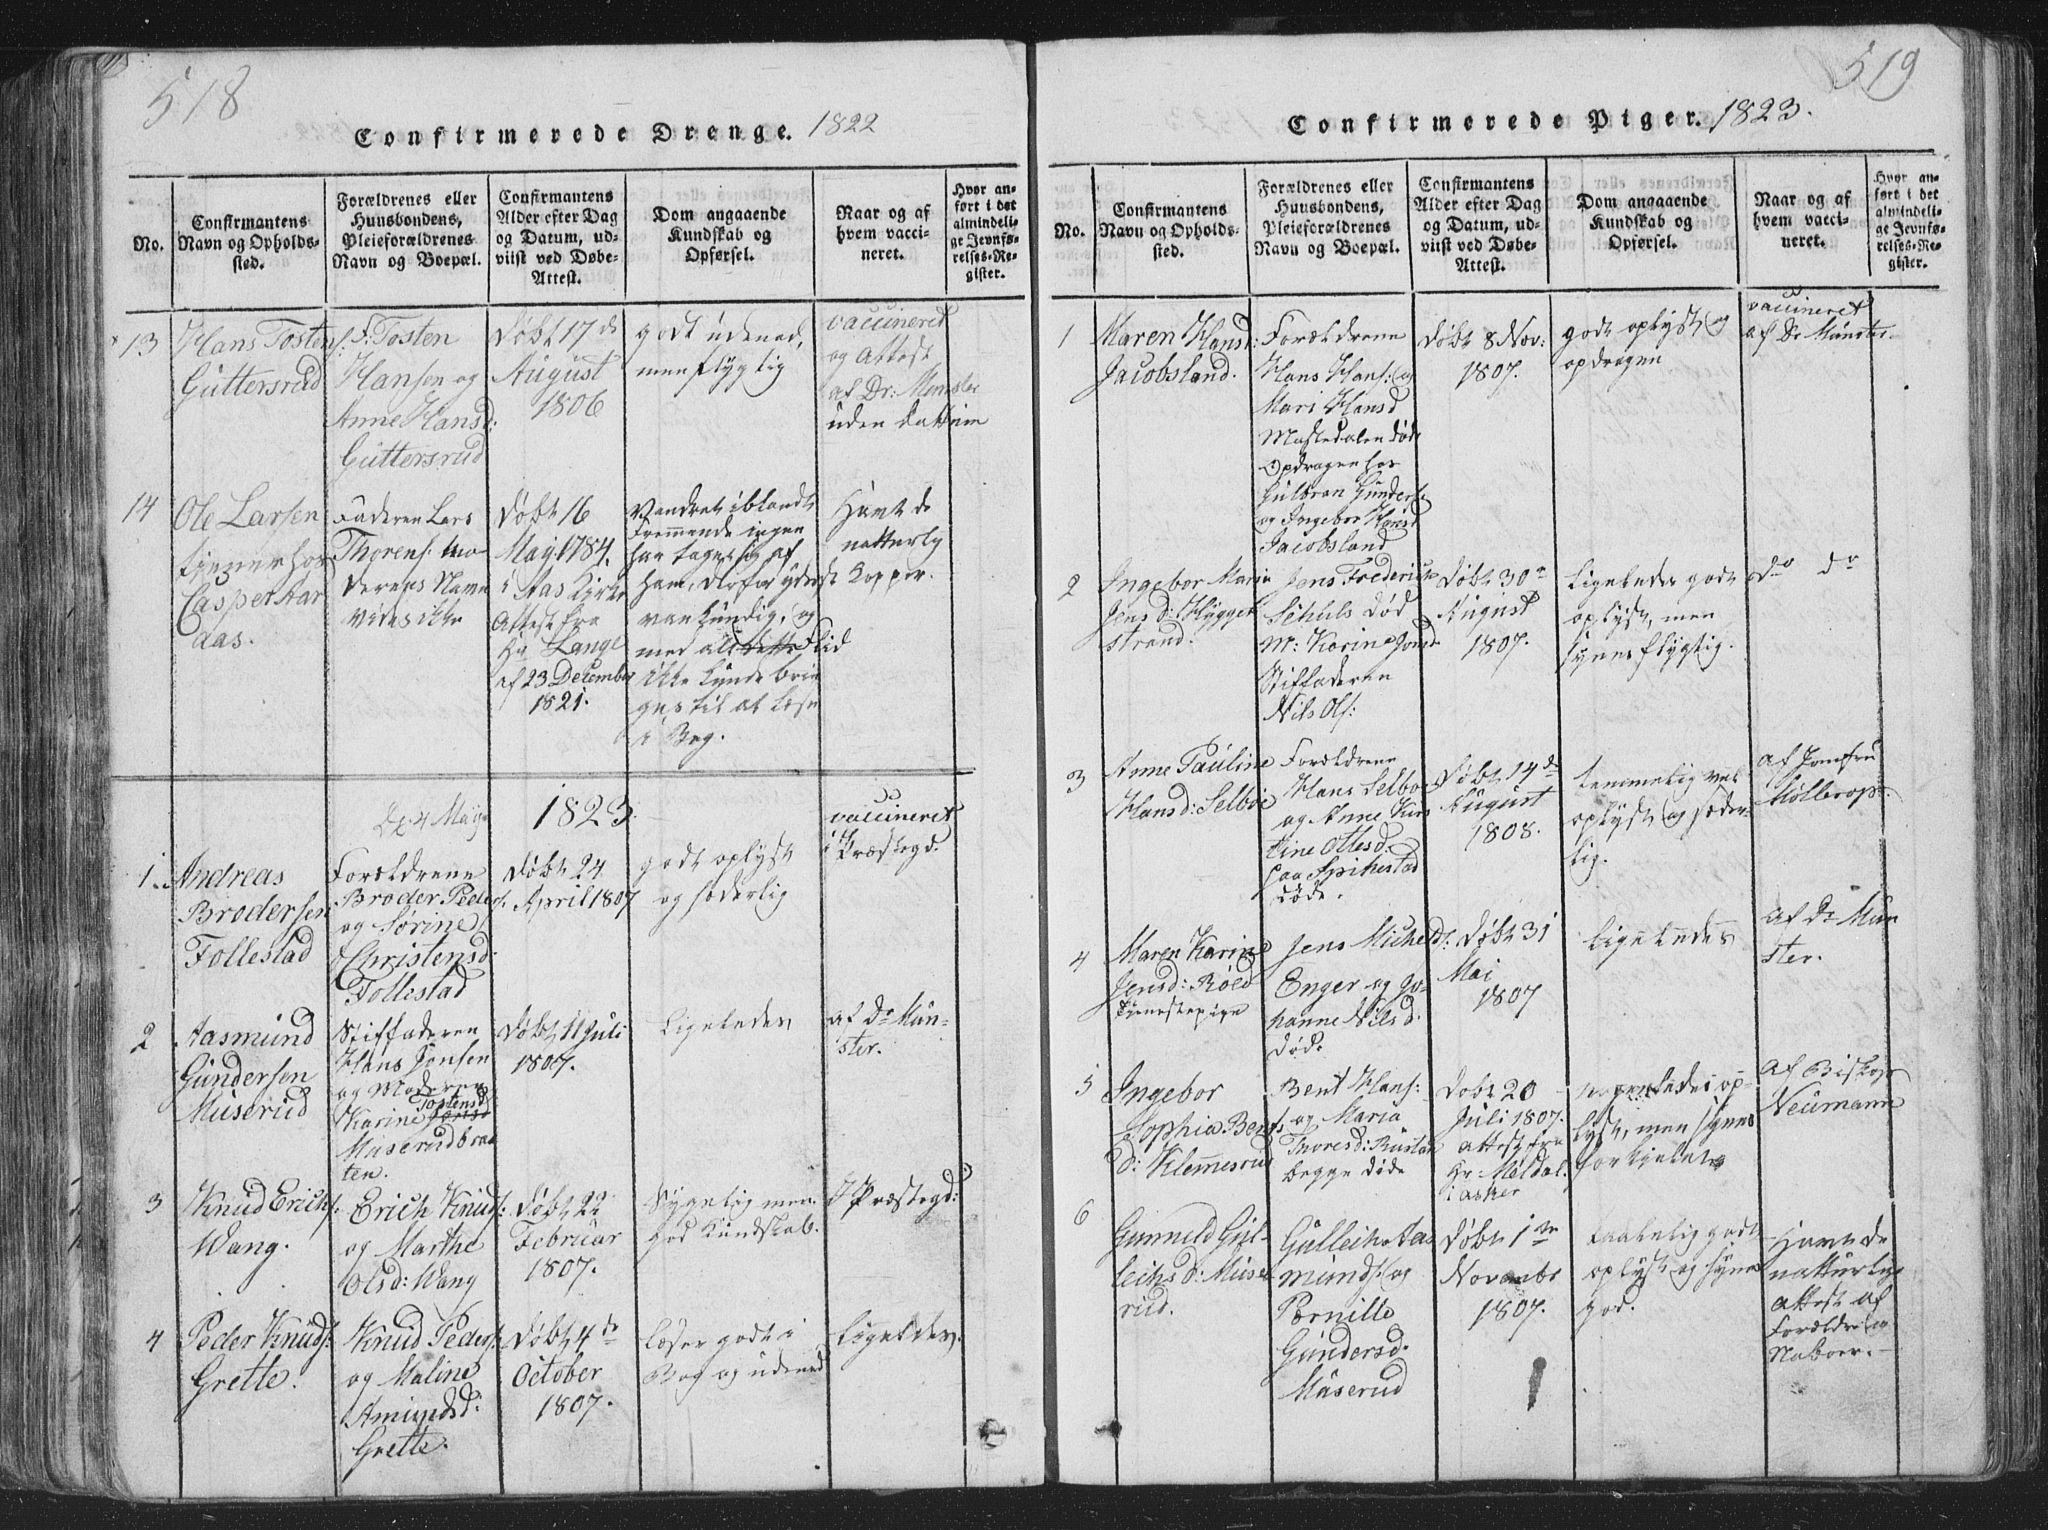 518
Confirmerede Drenge. 1822
No.
Confirmantens
Navn og Opholds-
sted.
Forældrenes eller
Huusbondens,
Pleieforældrenes
Navn og Boepæl.
Confirmantens
Alder efter Dag
og Datum, ud-
viist ved Døbe-
Attest.
Dom angaaende
Kundskab og
Opførsel.
Naar og af
hvem vacci-
neret.
Hvor an-
ført i det
almindeli-
ge Jevnfø-
relses-Re-
gister.
13
Hans Tostens:
Guttersrud
F. Tosten
Hansen og
Anne Hansd:
Guttersrud
Døbt 17de
August
1806
godt udenad,
men flygtig
vaccineret
og Attest
af Dr: Münster
uden Dattum
14
Ole Larsen
tiener hos
Casper Aar
aas.
Faderen Lars
Thorens: Mo
derens Navn
vides ikke
Døbt 16
May 1784.
i Aas Kirke
Attest fra
Hr Lange
af 23 December
1821.
Vandret iblandt
Fremmede ingen
har taget sig af
ham, derfor yderst
van kundig, og
med al Flid
ikke kunde brin
ges til at læse
i Bog.
Havt de
natturly
Kopper.
De 4 May 1823.
1.
Andreas
Brodersen
Follestad
Forældrene
Broder Peders:
og Sørine
Christensd:
Follestad
Døbt 24
April 1807
godt oplyst
og sæderlig
vaccineret
i Præstegd.
2
Aasmund
Gundersen
Muserud
Stiffaderen
Hans Jonsen
og Moderen
Karine Tostensd
Muserudbraa
ten.
Døbt 11 Juli
1807.
Ligeledes
af Dr Mün-
ster.
3
Knud Erichs:
Wang.
Erich Knuds:
og Marthe
Olsd: Wang
Døbt 22
Februar
1807.
Sygelig men
god Kundskab.
I Præstegd:
4
Peder Knuds:
Grette.
Knud Peders:
og Maline
Amundsd:
Grette.
Døbt 4de
October
1807.
Læser godt i
Bog og udenad
Ligeledes.
519
Confirmerede Piger. 1823.
No.
Confirmantens
Navn og Opholds-
sted.
Forældrenes eller
Huusbondens,
Pleieforældrenes
Navn og Boepæl.
Confirmantens
Alder efter Dag
og Datum, ud-
viist ved Døbe-
Attest.
Dom angaaende
Kundskab og
Opførsel.
Naar og af
hvem vacci-
neret.
Hvor an-
ført i det
almindeli-
ge Jevnfø-
relses-Re-
gister.
1
Maren Hansd:
Jacobsland.
Forældrene
Hans Hans: og
Mari Hansd
Mastedalen døde
Opdragen hos
Gulbran Gunders:
og Ingebor Hansd
Jacobsland
Døbt 8 Nov:
1807.
godt oplyst og
opdragen
vaccineret
af Dr Münster.
2
Ingebor Maria
Jens d: Hygget
strand.
Jens Frederich
Schuls død
M: Karine Jonsd
Stiffaderen
Nils Ols:
Døbt 30te
August
1807.
Ligeledes godt
oplyst, men
synes flygtig.
do do
3
Anne Pauline
Hansd: Selboe
Forældrene
Hans Selboe
og Anne Kirs
tine Ottesd:
paa Spikestad
døde.
Døbt 14de
August
1808.
temmelig vel
oplyst og sæder
lig.
af Jomfru
Møllerop.
4
Maren Karine
Jensd: Røed
Tienestepige
Jens Michels:
Enger og Jo-
hanne Nilsd:
død.
Døbt 31
Mai
1807
Ligeledes
af Dr Mün
ster.
5
Ingebor
Sophia Bents
d: Klemesrud
Bent Hans:
og Maria
Thoresd: Rustan
begge døde
Døbt 20
Juli 1807.
Attest fra
Hr: Meldal
i Asker
nogenledes op-
lyst, men synes
forkielet
af Biskop
Neumann
6
Gunnild Gul-
leiks d: Muse
rud.
Gulleik Aas
munds: og
Pernille
Gundersd:
Muserud
Døbt 1te
Novembr
1807.
taalelig godt
oplyst og synes
god.
Havt de
natturlige
Attest af
Forældre og
Naboer.